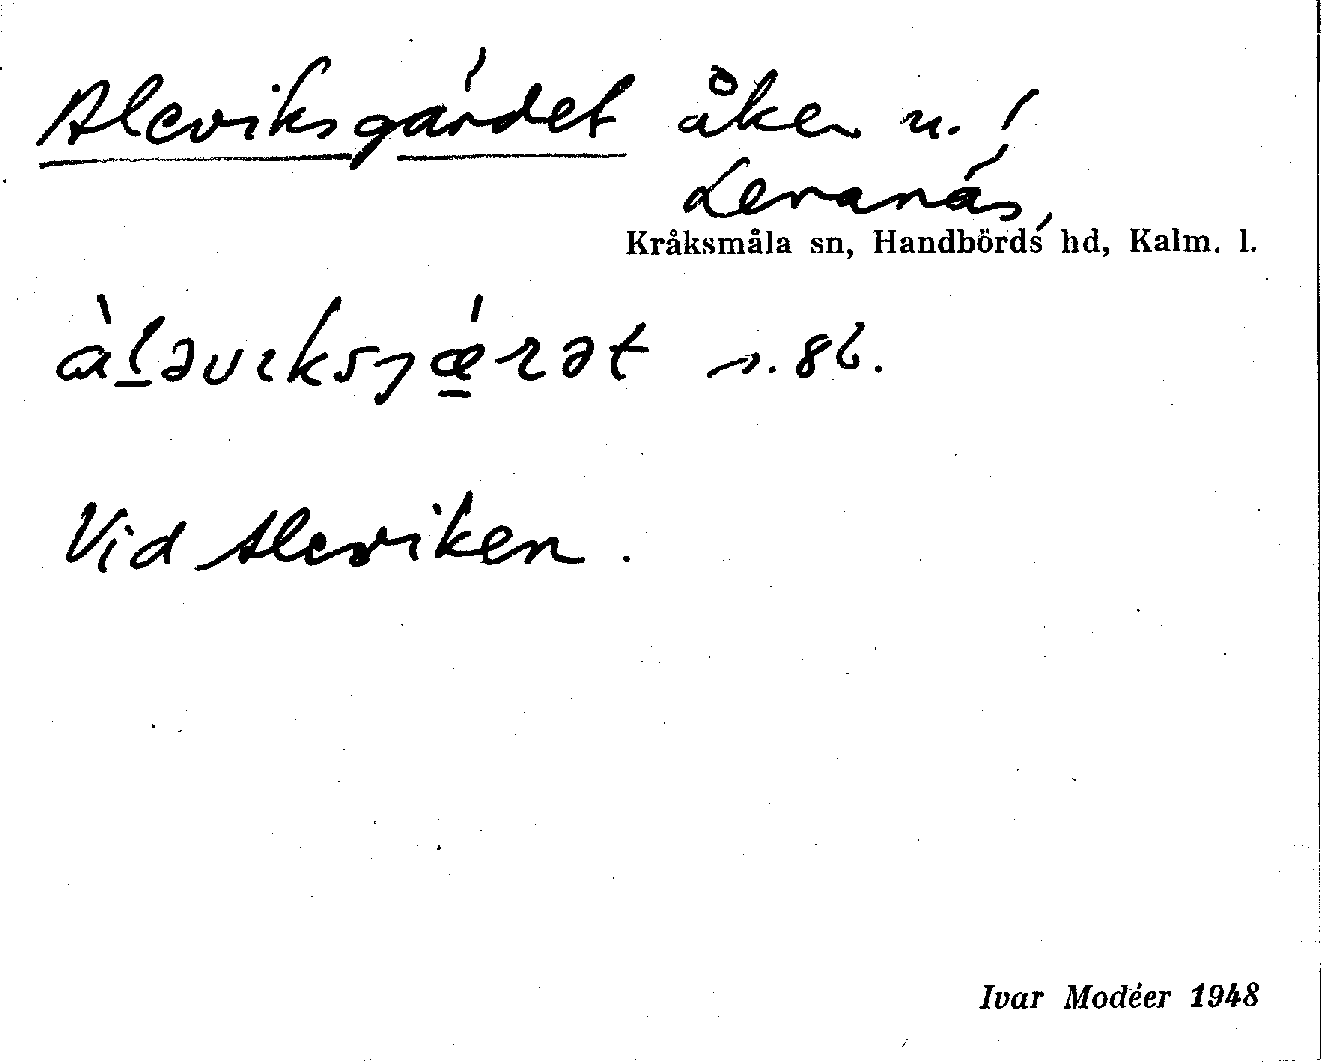 Aleviksgärdet åker u. /
Levanäs,
Kråksmåla sn, Handbörds hd, Kalm. l.
àḻəvıksȷǽ̲rət s. 86.
Vid Aleviken.
Ivar Modéer 1948